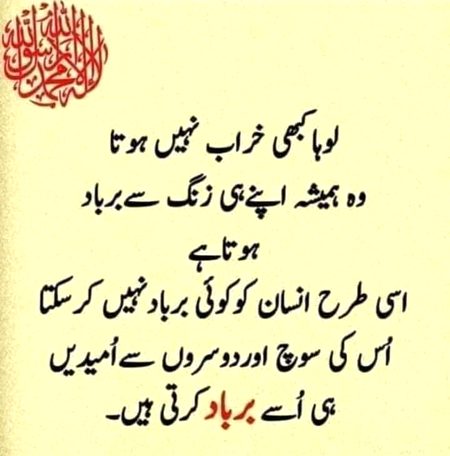 لا الہ الا اللہ محمد رسول اللہ
لوہا کبھی خراب نہیں ہوتا
وہ ہمیشہ اپنے ہی زنگ سے برباد
ہوتا ہے
اسی طرح انسان کو کوئی برباد نہیں کر سکتا
اُس کی سوچ اور دوسروں سے اُمیدیں
ہی اُسے برباد کرتی ہیں۔